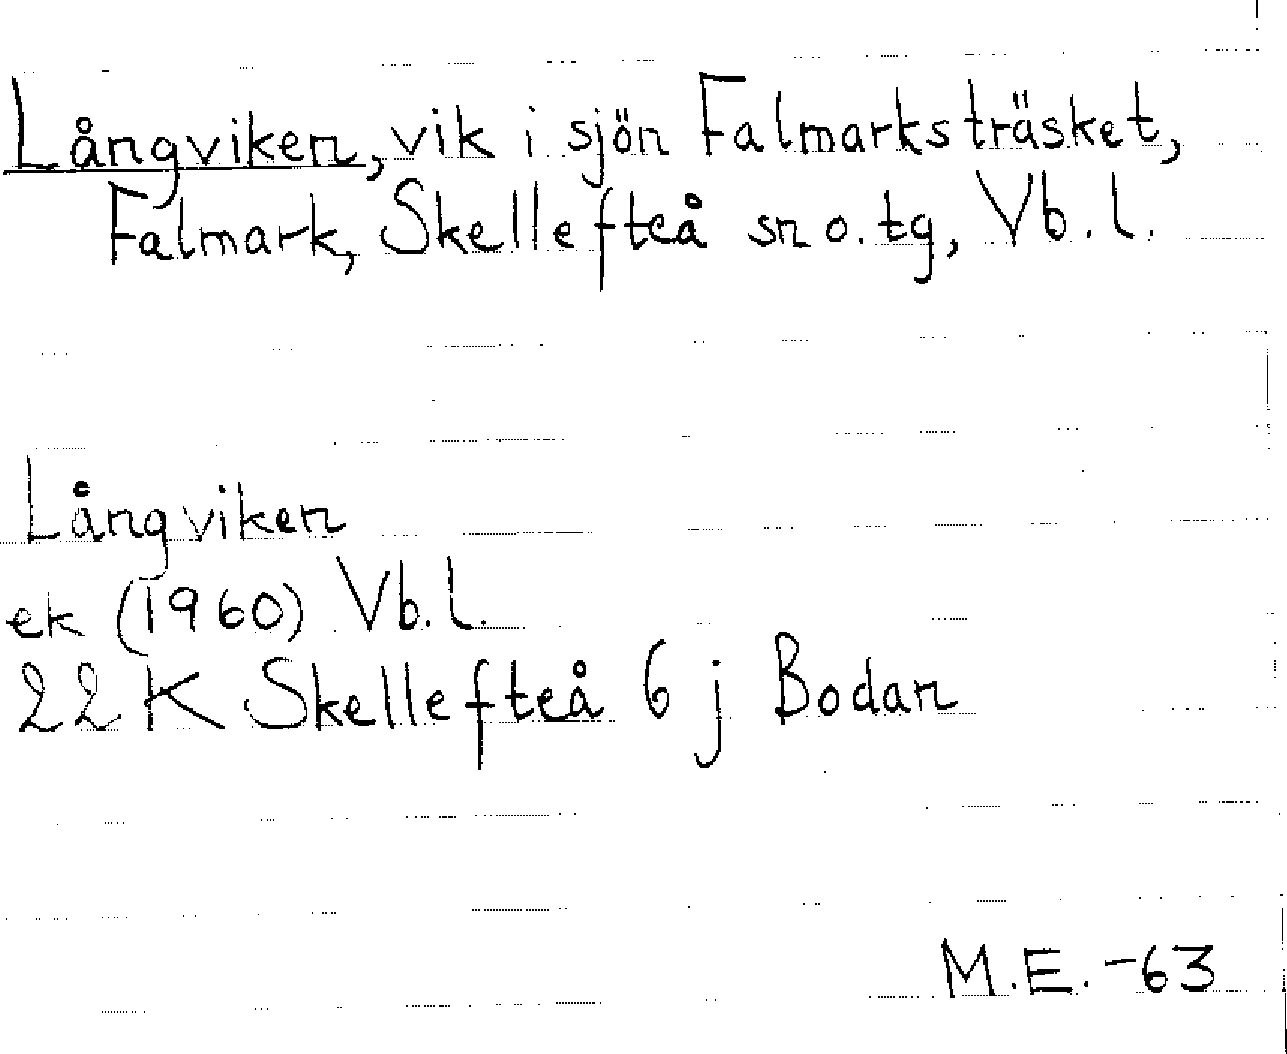 Långviken, vik i sjön Falmarksträsket,
Falmark, Skellefteå sn o. tg, Vb. l.
Långviken
ek (1960) Vb. l.
22 K Skellefteå 6 j Bodan
M.E. -63